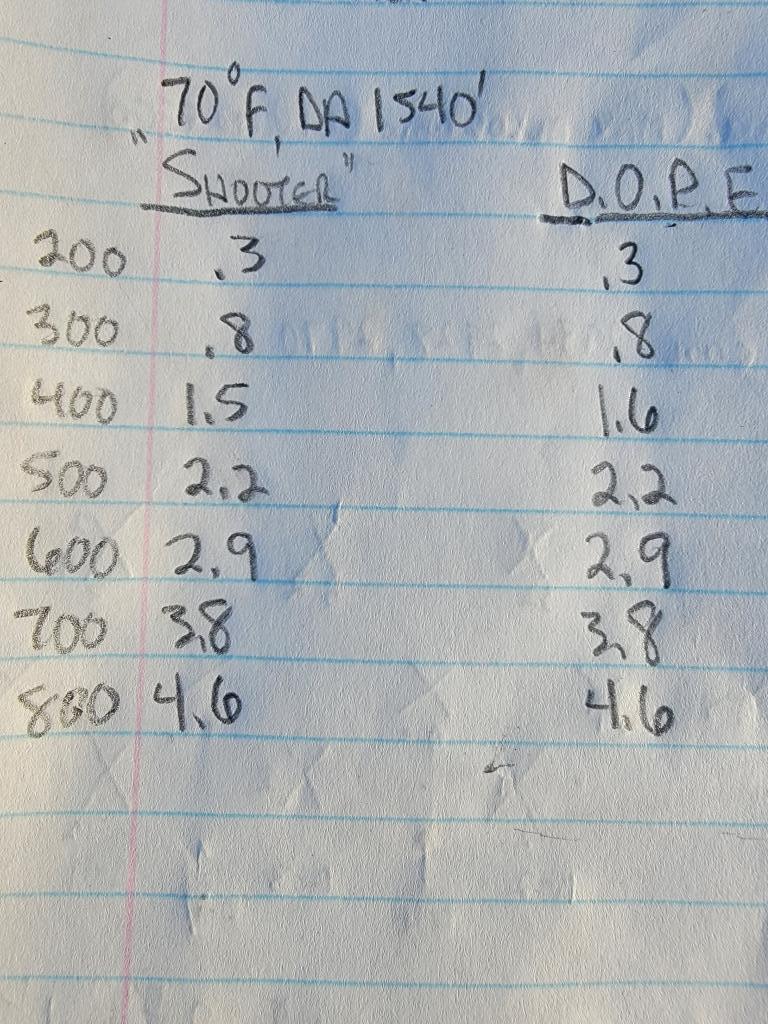 70°F, DA 1540'
"SHOOTER" D.O.P.E
200 .3 .3
300 .8 .8
400 1.5 1.6
500 2.2 2.2
600 2.9 2.9
700 3.8 3.8
800 4.6 4.6